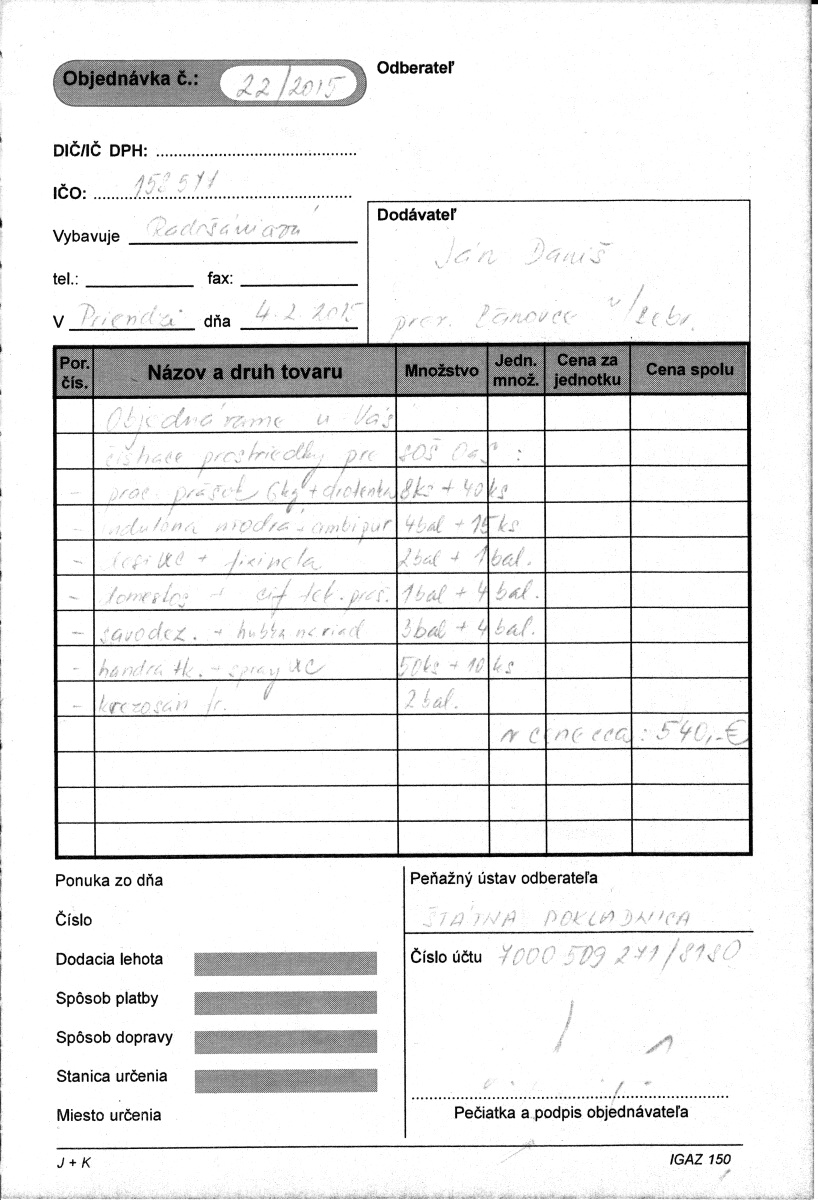 Objednávka č.: 22/2015
Odberateľ
DIČ/IČ DPH:
IČO: 158511
Vybavuje
tel.: fax:
V Prievidzi dňa 4.2.2015
Dodávateľ
Ján Daniš
prev.
Por. čís. Názov a druh tovaru Množstvo Jedn. množ. Cena za jednotku Cena spolu
Objednávame u Vás
čistiace prostriedky pre SOŠ OaS :
- prac. prášok 6kg + drôtenka 8ks + 40ks
- indulona modrá + ambipur 4bal + 15ks
- + fixinela 2bal + 1bal.
- domestos + cif tek. práš. 1bal + 4bal.
- savodez. + hubka na riad 3bal + 4bal.
- handra tk. + spray WC 50ks + 10ks
- krezosan fr. 2bal.
v cene cca : 540,-€
Ponuka zo dňa
Číslo
Dodacia lehota
Spôsob platby
Spôsob dopravy
Stanica určenia
Miesto určenia
Peňažný ústav odberateľa
ŠTÁTNA POKLADNICA
Číslo účtu 7000 509 271/8180
Pečiatka a podpis objednávateľa
J + K
IGAZ 150